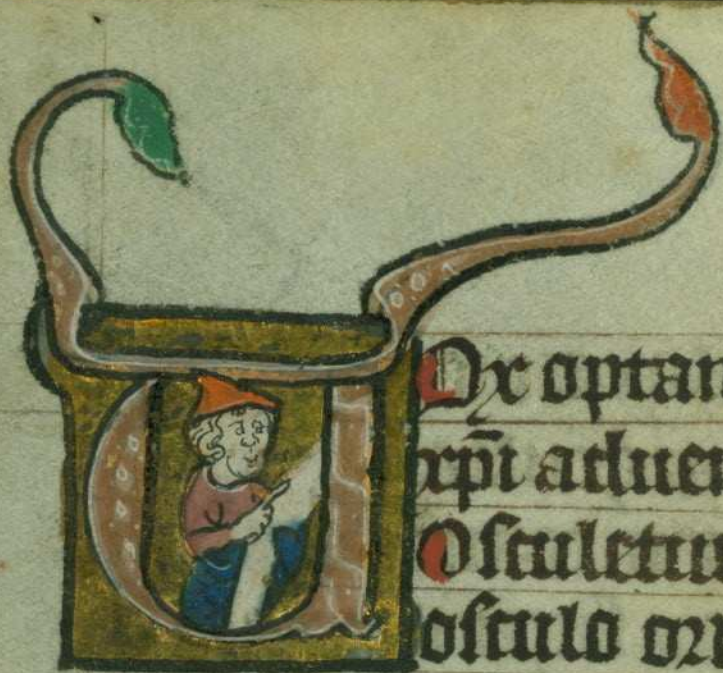 UOx optan
xp̄i aduen
Osculetu
osculo ori